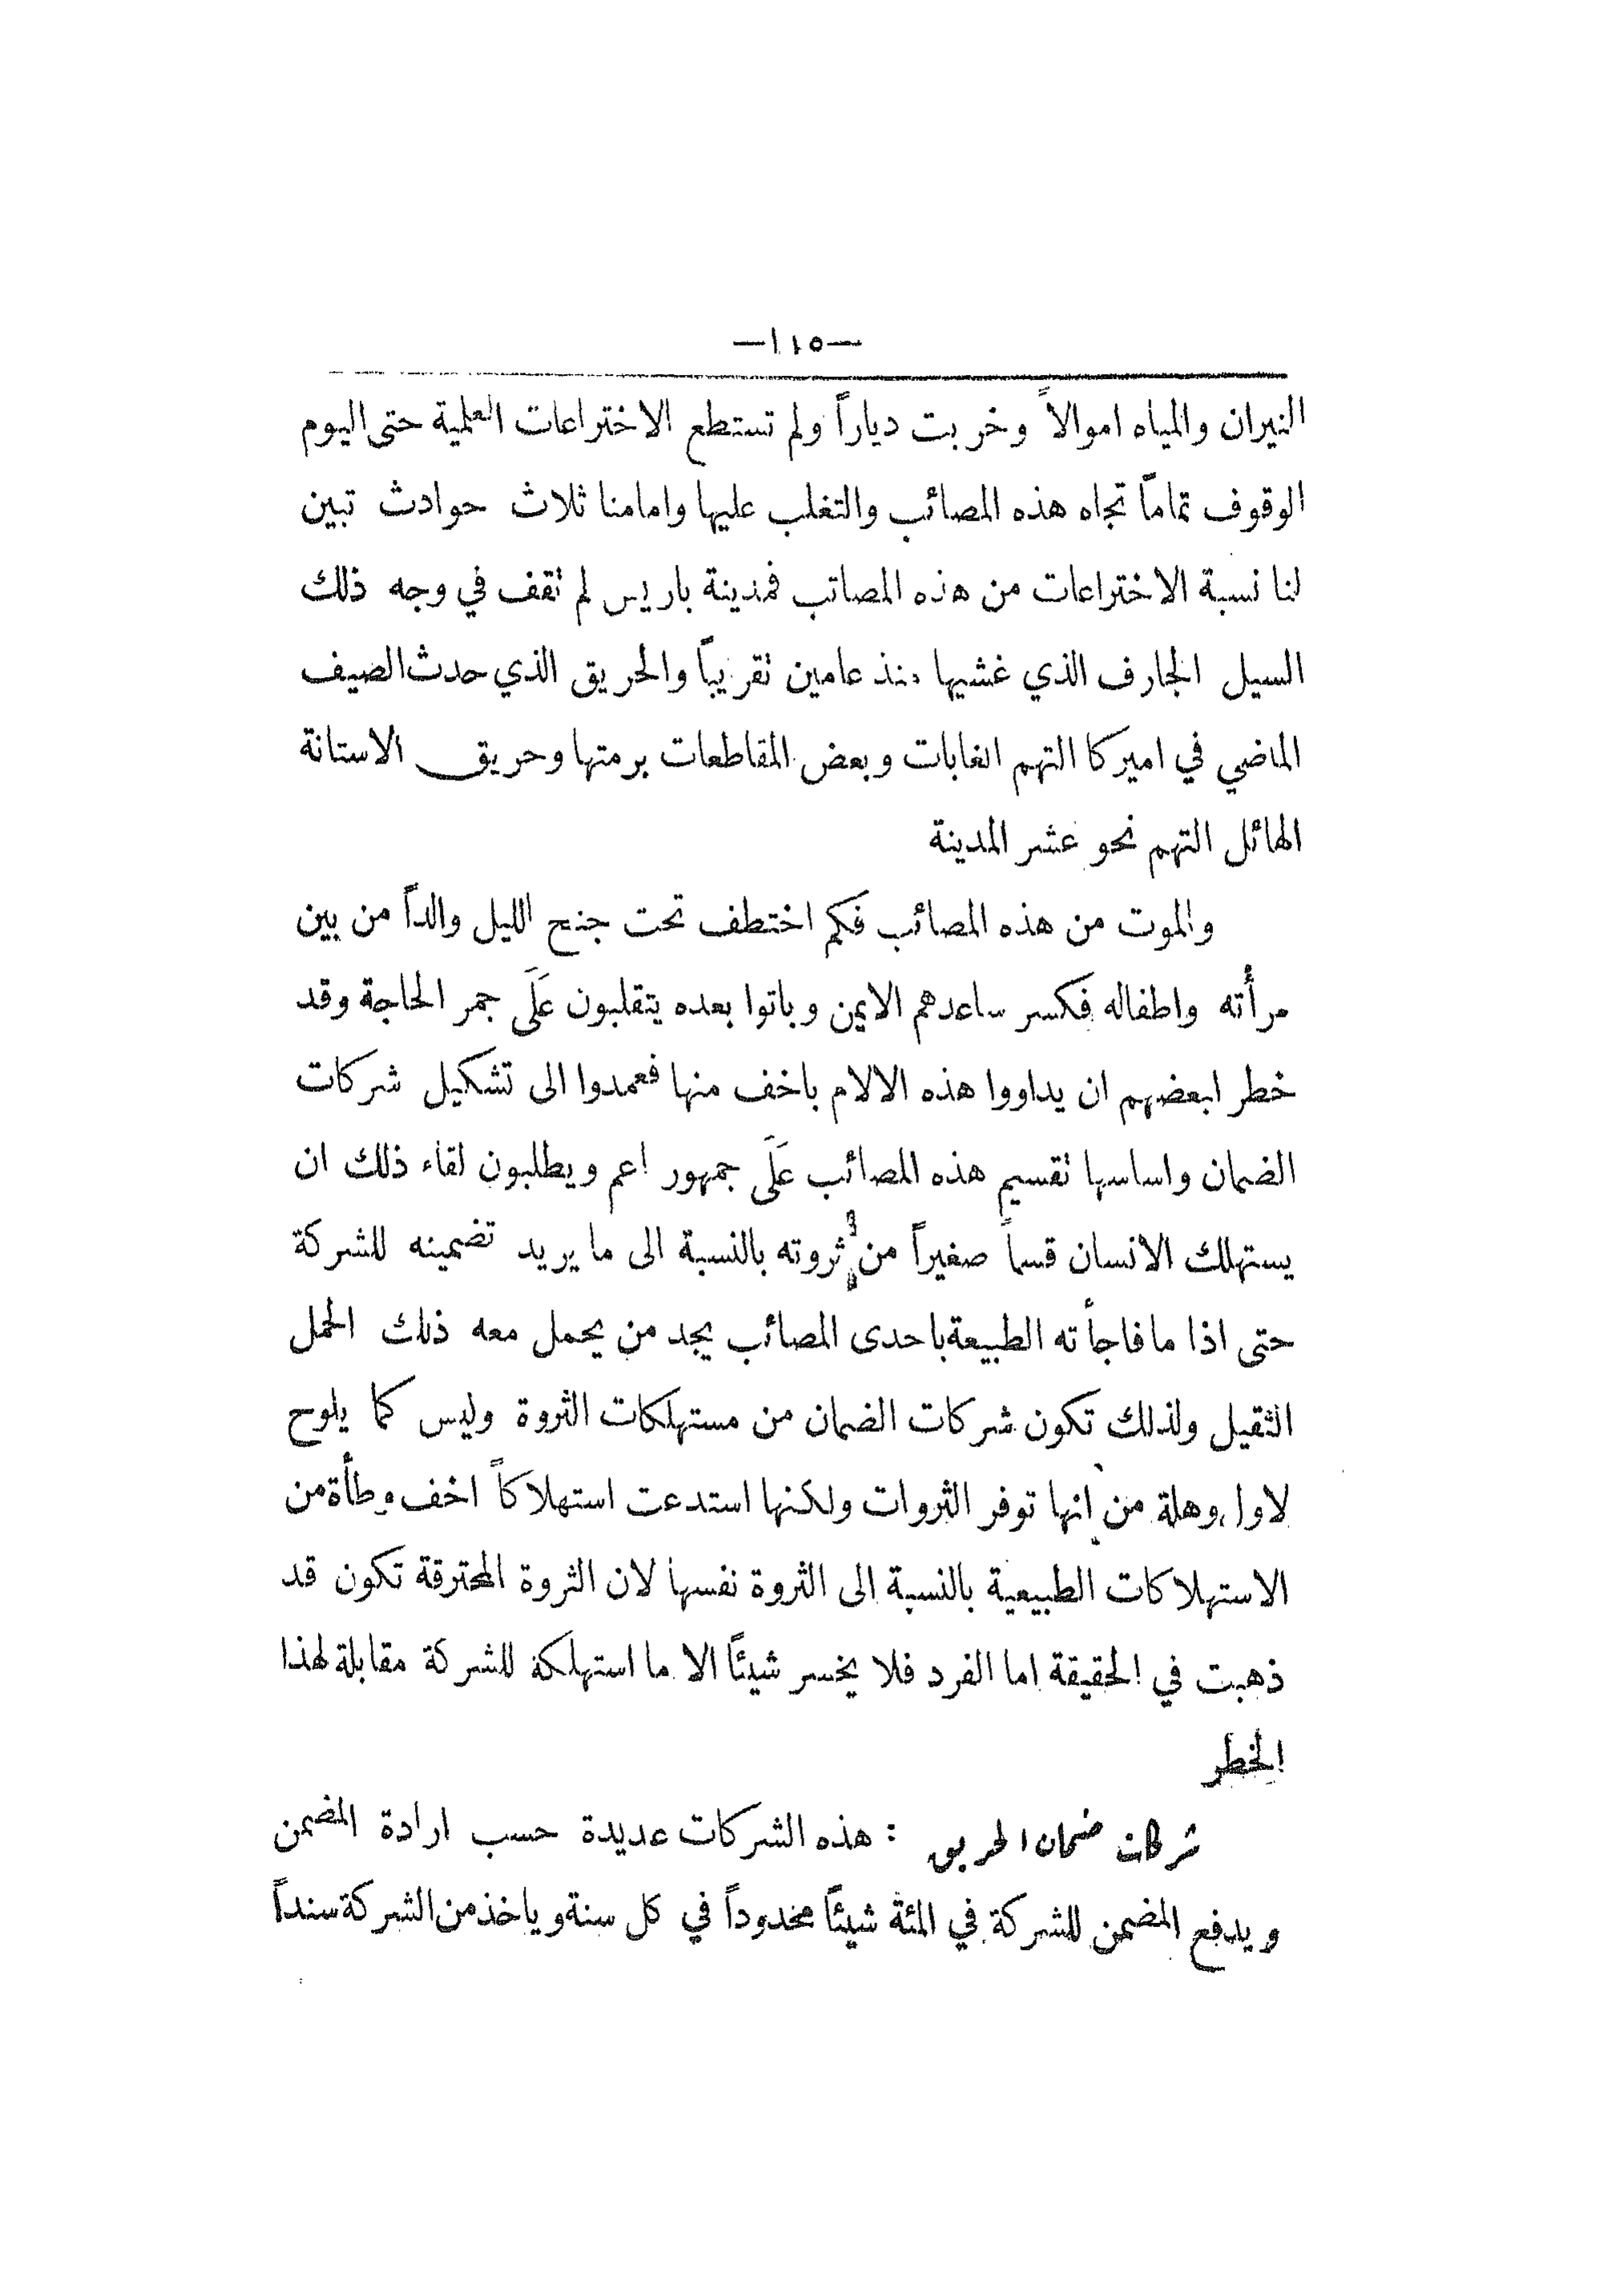 —١١٥—
النيران والمياه اموالاً وخربت دياراً ولم تستطع الاختراعات العلمية حتى اليوم
الوقوف تماماً تجاه هذه المصائب والتغلب عليها وامامنا ثلاث حوادث تبين
لنا نسبة الاختراعات من هذه المصائب فمدينة باريس لم تقف في وجه ذلك
السيل الجارف الذي غشيها منذ عامين تقريباً والحريق الذي حدث الصيف
الماضي في اميركا التهم الغابات وبعض المقاطعات برمتها وحريق الاستانة
الهائل التهم نحو عشر المدينة
والموت من هذه المصائب فكم اختطف تحت جنح الليل والداً من بين
مرأته واطفاله فكسر ساعدهم الايمن وباتوا بعده يتقلبون عَلَى جمر الحاجة وقد
خطر لبعضهم ان يداووا هذه الالام باخف منها فعمدوا الى تشكيل شركات
الضمان واساسها تقسيم هذه المصائب عَلَى جمهور اعم ويطلبون لقاء ذلك ان
يستهلك الانسان قسماً صغيراً من ثروته بالنسبة الى ما يريد تضمينه للشركة
حتى اذا ما فاجأته الطبيعة باحدى المصائب يجد من يحمل معه ذلك الحمل
الثقيل ولذلك تكون شركات الضمان من مستهلكات الثروة وليس كما يلوح
لاول وهلة من انها توفر الثروات ولكنها استدعت استهلاكاً اخف وطأة من
الاستهلاكات الطبيعية بالنسبة الى الثروة نفسها لان الثروة المحترقة تكون قد
ذهبت في الحقيقة اما الفرد فلا يخسر شيئاً الا ما استهلكة للشركة مقابلة لهذا
الخطر
شركات ضمان الحريق : هذه الشركات عديدة حسب ارادة المضمن
ويدفع المضمن للشركة في المئة شيئاً محدوداً في كل سنة وياخذ من الشركة سنداً